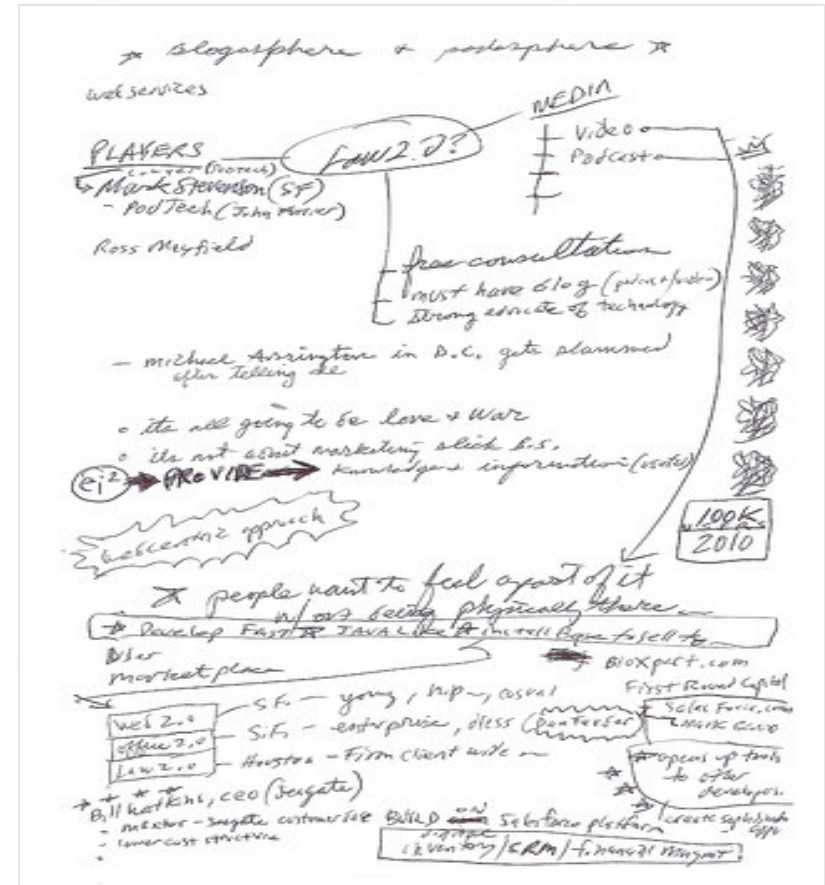 ★ Blogosphere + podosphere ★
web services
MEDIA
Video
Podcast
PLAYERS
Law 2.0?
Mark Stevenson (SF)
- PodTech (John
Ross Mayfield
free consultation
must have blog
strong advocate of technology
- Michael Arrington in D.C. gets slammed
after telling
• its all going to be love + war
• its not about marketing slick b.s.
ei² PROVIDE Knowledge information
webcentric approach
100K
2010
★ people want to feel apart of it
w/out being physically there
★ Develop FAST JAVA LIKE install to sell to
User
marketplace
BioXpert.com
First Round Capital
Web 2.0 S.F. - young, hip, casual
office 2.0 S.F. - enterprise, dress
Law 2.0 Houston - Firm client wide
Sales Force.com
opens up tools
to other
developers
Bill Watkins, CEO (Seagate)
- Maxtor - Seagate customer base
- lower cost structure
BUILD ON Salesforce platform
inventory / CRM / financial Mngmt.